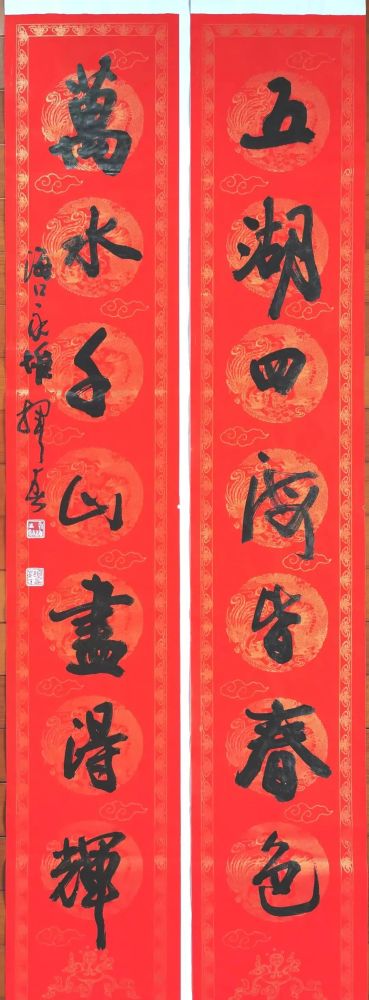 五湖四海皆春色
萬水千山盡得輝
海口永雄揮春